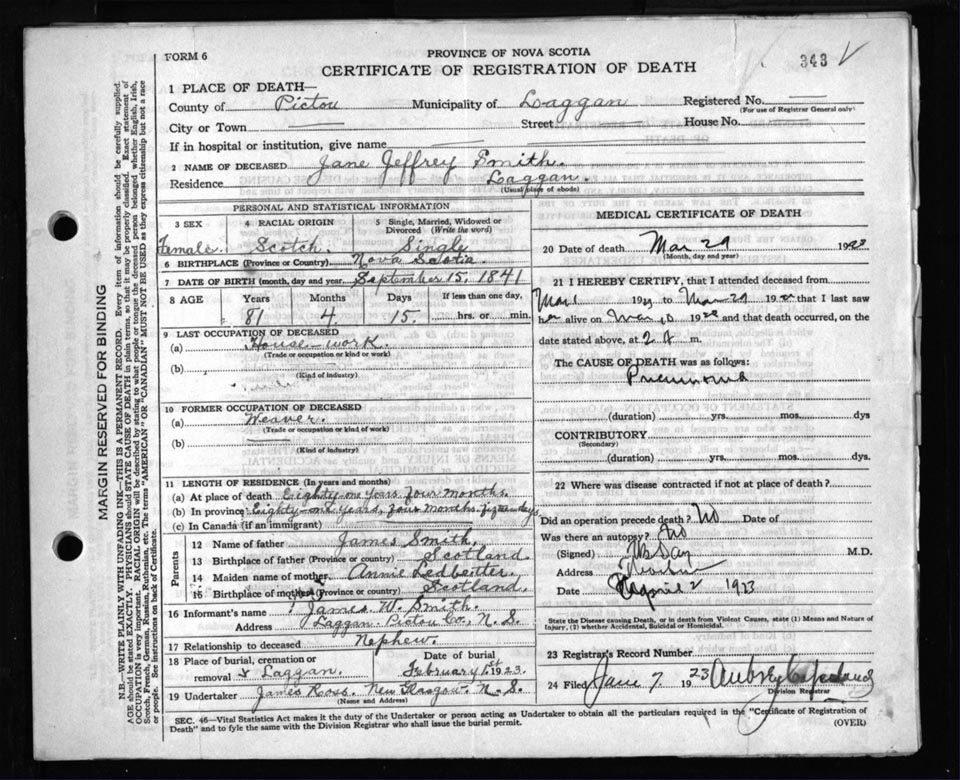 343 V
FORM 6
PROVINCE OF NOVA SCOTIA
CERTIFICATE OF REGISTRATION OF DEATH
1 PLACE OF DEATH—
County of Pictou Municipality of Laggan Registered No.
(For use of Registrar General only)
City or Town Street House No.
If in hospital or institution, give name
2 NAME OF DECEASED Jane Jeffrey Smith.
Residence Laggan.
(Usual place of abode)
PERSONAL AND STATISTICAL INFORMATION
3 SEX Female.
4 RACIAL ORIGIN Scotch.
5 Single, Married, Widowed or Divorced (Write the word) Single
6 BIRTHPLACE (Province or Country) Nova Scotia.
7 DATE OF BIRTH (month, day and year) September 15, 1841
8 AGE Years Months Days If less than one day,
81 4 15. hrs. or min.
9 LAST OCCUPATION OF DECEASED
(a) House-work.
(Trade or occupation or kind of work)
(b)
(Kind of industry)
10 FORMER OCCUPATION OF DECEASED
(a) Weaver.
(Trade or occupation or kind of work)
(b)
(Kind of industry)
11 LENGTH OF RESIDENCE (In years and months)
(a) At place of death Eighty-one Years Four months.
(b) In province Eighty-one Years, four months fifteen days
(c) In Canada (if an immigrant)
Parents
12 Name of father James Smith.
13 Birthplace of father (Province or country) Scotland
14 Maiden name of mother Annie Ledbetter.
15 Birthplace of mother (Province or country) Scotland.
16 Informant's name James W. Smith.
Address Laggan Pictou Co., N. S.
17 Relationship to deceased Nephew.
18 Place of burial, cremation or removal Laggan. Date of burial February 1st 1923.
19 Undertaker James Ross. New Glasgow. N. S.
(Name and Address)
MEDICAL CERTIFICATE OF DEATH
20 Date of death Mar 29 19
(Month, day and year)
21 I HEREBY CERTIFY, that I attended deceased from
Mar 1 19 to Mar 29 19 that I last saw
her alive on 19 and that death occurred, on
date stated above, at 2 m.
The CAUSE OF DEATH was as follows:
Pneumonia
(duration) yrs. mos. dys
CONTRIBUTORY
(Secondary)
(duration) yrs. mos. dys.
22 Where was disease contracted if not at place of death?
Did an operation precede death? No Date of
Was there an autopsy? No
(Signed) M.D.
Address
Date April 2 1923
State the Disease causing Death, or in death from Violent Causes, state (1) Means and Nature of Injury, (2) whether Accidental, Suicidal or Homicidal.
23 Registrar's Record Number
24 Filed June 7 1923 Aubrey Copeland
Division Registrar
SEC. 46—Vital Statistics Act makes it the duty of the Undertaker or person acting as Undertaker to obtain all the particulars required in the "Certificate of Registration of
Death" and to fyle the same with the Division Registrar who shall issue the burial permit. (OVER)
MARGIN RESERVED FOR BINDING
N.B.—WRITE PLAINLY WITH UNFADING INK—THIS IS A PERMANENT RECORD. Every item of information should be carefully supplied.
AGE should be stated EXACTLY. PHYSICIANS should STATE CAUSE OF DEATH in plain terms, so that it may be properly classified. Exact statement of
OCCUPATION is very important. RACIAL ORIGIN will be described by stating to what people or tongue the deceased person belonged whether English, Irish,
Scotch, French, German, Russian, Ruthenian, etc. The terms "AMERICAN" OR "CANADIAN" MUST NOT BE USED as they express citizenship but not a race
or people. See instructions on back of Certificate.